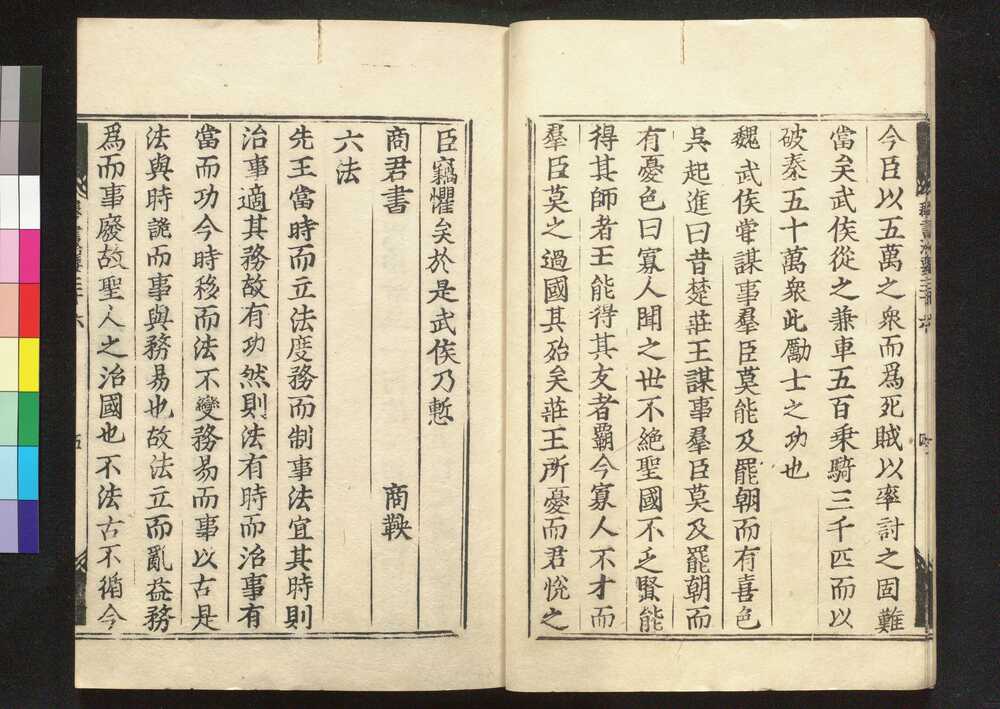 今臣以五萬之衆而爲死賊以率討之固難
當矣武侯從之兼車五百乗騎三千匹而以
破秦五十萬衆此勵士之功也
魏武侯甞謀事羣臣莫能及罷朝而有喜色
吳起進曰昔楚莊王謀事羣臣莫及罷朝而
有憂色曰寡人聞之世不絶聖國不乏賢能
得其師者王能得其友者覇今寡人不才而
羣臣莫之過國其殆矣莊王所憂而君悅之
臣竊懼矣於是武侯乃慙
商君書 商鞅
六法
先王當時而立法度務而制事法宜其時則
治事適其務故有功然則法有時而治事有
當而功今時移而法不變務易而事以古是
法與時詭而事與務易也故法立而亂益務
爲而事廢故聖人之治國也不法古不循今